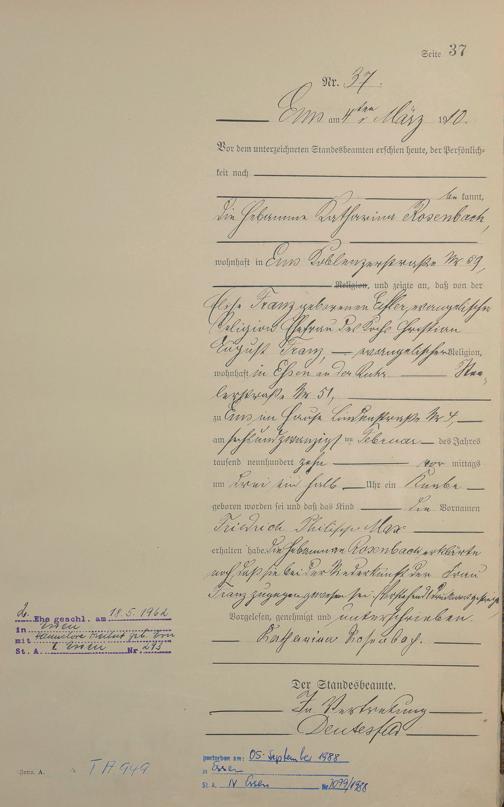 Seite 37
Nr. 37.
Ems am 4ten März 1910.
Vor dem unterzeichneten Standesbeamten erschien heute, der Persönlich-
keit nach
be kannt,
die Hebamme Katharina Rosenbach,
wohnhaft in Ems Koblenzerstraße Nr 59,
Religion, und zeigte an, daß von der
Franz geborenen evangelischer
Religion Ehefrau des Kochs Christian
August Franz, evangelischer Religion,
wohnhaft in Essen an der Ruhr
lerstraße Nr. 51,
zu Ems, im Hause Lindenstraße Nr 4,
am sechsundzwanzigsten Februar des Jahres
tausend neunhundert zehn vor mittags
um drei ein halb Uhr ein Knabe
geboren worden sei und daß das Kind die Vornamen
Friedrich Philipp Max
erhalten habe. Die Hebamme Rosenbach erklärte
noch, daß sie bei der Niederkunft der Frau
Franz zugegen gewesen sei.
Vorgelesen, genehmigt und unterschrieben.
Katharina Rosenbach.
Der Standesbeamte.
In Vertretung
2. Ehe geschl. am 18.5.1962
in Essen
mit Hannelore geb.
St. A. Essen Nr. 293
Form. A.
gestorben am: 05. September 1988
in Essen
St. A. IV Essen Nr. 1099/1988